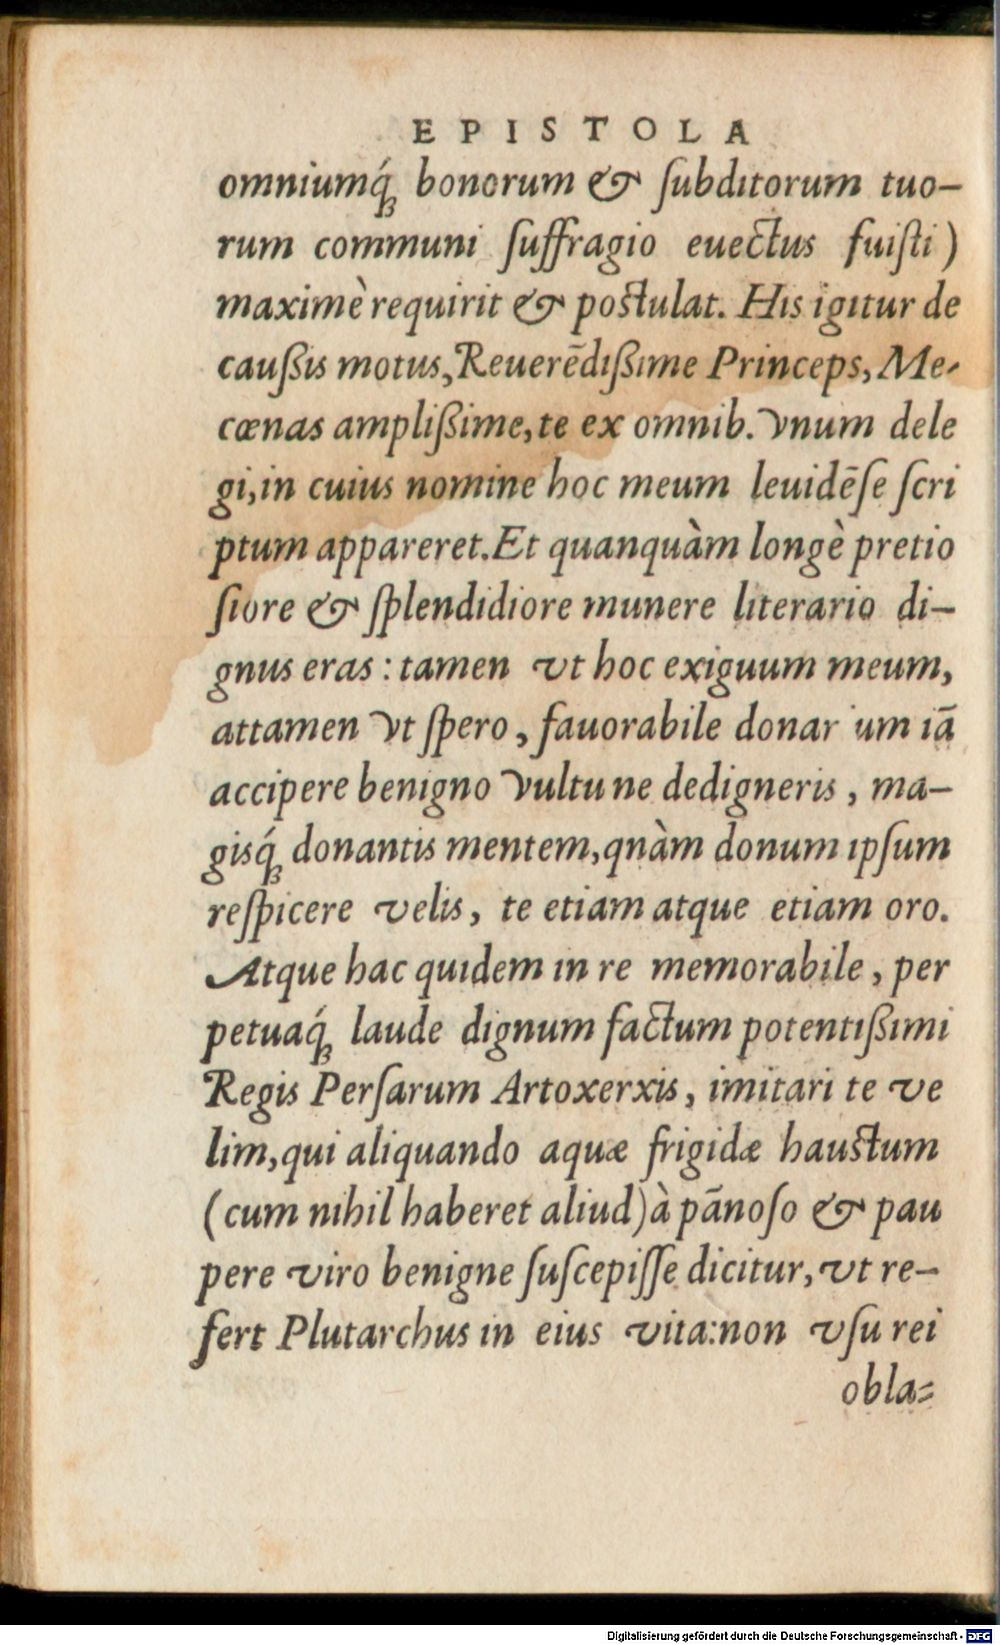 EPISTOLA
omniumq́ꝫ bonorum & ſubditorum tuo-
rum communi ſuffragio euectus fuiſti)
maximè requirit & poſtulat. His igitur de
cauſsis motus, Reuerēdiſsime Princeps, Me-
cœnas ampliſsime, te ex omnib. vnum dele
gi, in cuius nomine hoc meum leuidēſe ſcri
ptum appareret. Et quanquàm longè pretio
ſiore & ſplendidiore munere literario di-
gnus eras: tamen vt hoc exiguum meum,
attamen vt ſpero, fauorabile donar um iā
accipere benigno vultu ne dedigneris, ma-
gisq́ꝫ donantis mentem, qnàm donum ipſum
reſpicere velis, te etiam atque etiam oro.
Atque hac quidem in re memorabile, per
petuaq́ꝫ laude dignum factum potentiſsimi
Regis Perſarum Artoxerxis, imitari te ve
lim, qui aliquando aquæ frigidæ hauſtum
(cum nihil haberet aliud) à pānoſo & pau
pere viro benigne ſuſcepiſſe dicitur, vt re-
fert Plutarchus in eius vita: non vſu rei
obla=
Digitalisierung gefördert durch die Deutsche Forschungsgemeinschaft - DFG